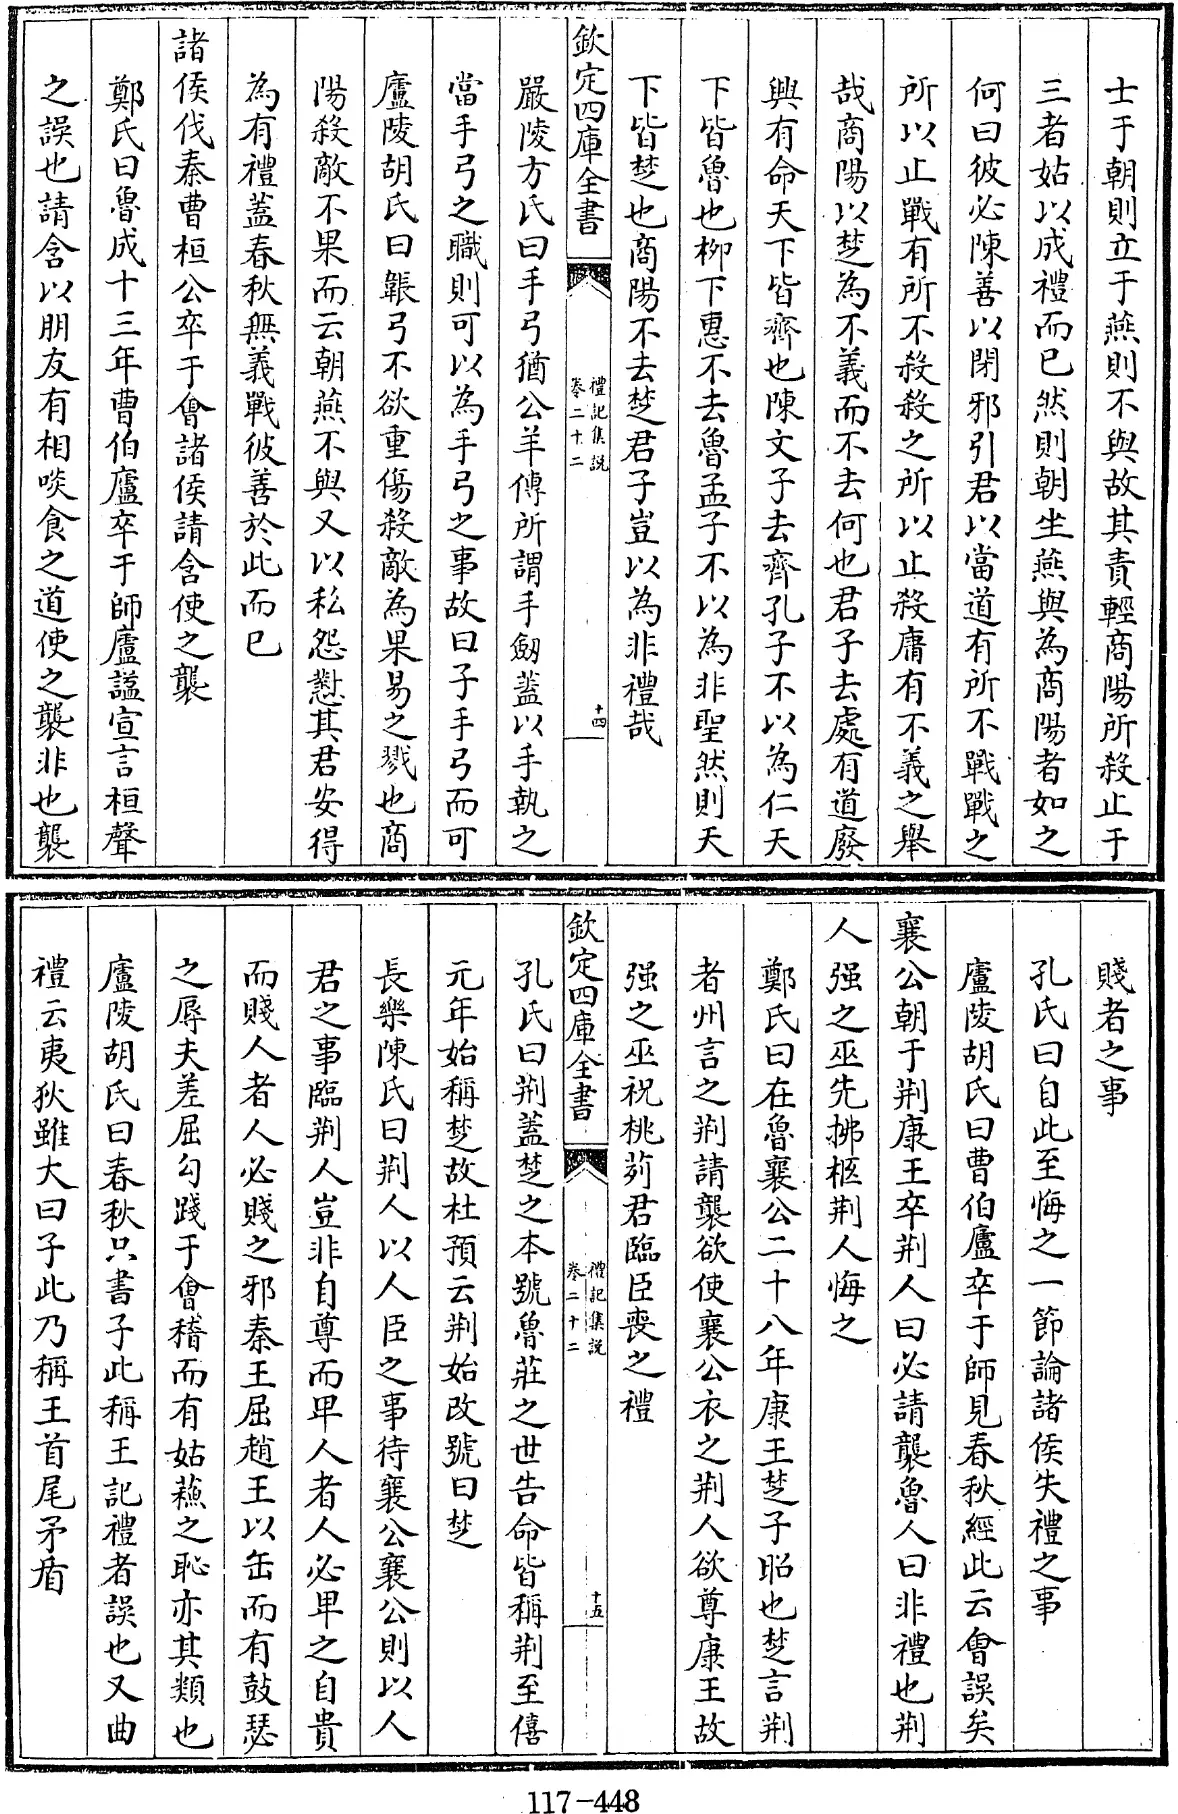 士于朝則立于燕則不與故其責輕商陽所殺止于
三者姑以成禮而已然則朝坐燕與為商陽者如之
何曰彼必陳善以閉邪引君以當道有所不戰戰之
所以止戰有所不殺殺之所以止殺庸有不義之舉
哉商陽以楚為不義而不去何也君子去處有道廢
興有命天下皆齊也陳文子去齊孔子不以為仁天
下皆魯也柳下惠不去魯孟子不以為非聖然則天
下皆楚也商陽不去楚君子豈以為非禮哉
欽定四庫全書
禮記集說
卷二十二
十四
嚴陵方氏曰手弓猶公羊傳所謂手劒蓋以手執之
當手弓之職則可以為手弓之事故曰子手弓而可
廬陵胡氏曰韔弓不欲重傷殺敵為果易之戮也商
陽殺敵不果而云朝燕不與又以私怨懟其君安得
為有禮蓋春秋無義戰彼善於此而已
諸侯伐秦曹桓公卒于會諸侯請含使之襲
鄭氏曰魯成十三年曹伯廬卒于師廬諡宣言桓聲
之誤也請含以朋友有相啖食之道使之襲非也襲
賤者之事
孔氏曰自此至悔之一節論諸侯失禮之事
廬陵胡氏曰曹伯廬卒于師見春秋經此云會誤矣
襄公朝于荆康王卒荆人曰必請襲魯人曰非禮也荆
人强之巫先拂柩荆人悔之
鄭氏曰在魯襄公二十八年康王楚子昭也楚言荆
者州言之荆請襲欲使襄公衣之荆人欲尊康王故
强之巫祝桃茢君臨臣喪之禮
欽定四庫全書
禮記集說
卷二十二
十五
孔氏曰荆蓋楚之本號魯莊之世告命皆稱荆至僖
元年始稱楚故杜預云荆始改號曰楚
長樂陳氏曰荆人以人臣之事待襄公襄公則以人
君之事臨荆人豈非自尊而卑人者人必卑之自貴
而賤人者人必賤之邪秦王屈趙王以缶而有鼓瑟
之辱夫差屈勾踐于會稽而有姑蘓之恥亦其類也
廬陵胡氏曰春秋只書子此稱王記禮者誤也又曲
禮云夷狄雖大曰子此乃稱王首尾矛盾
117-448